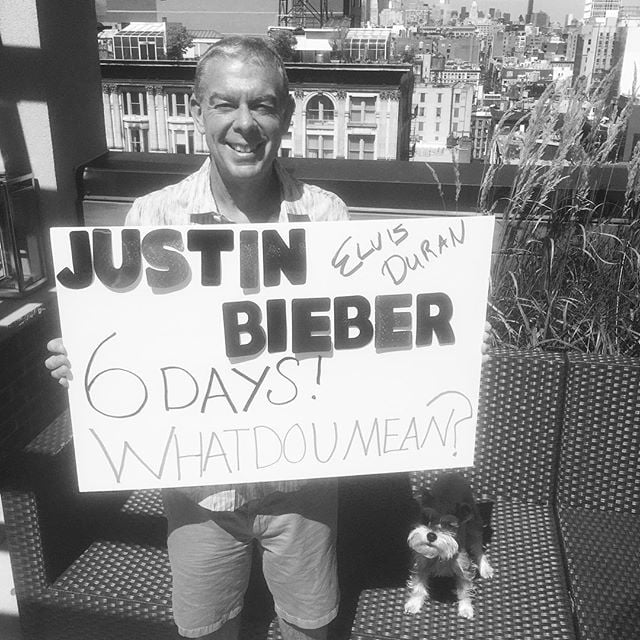 JUSTIN
ELVIS
DURAN
BIEBER
6 DAYS!
WHATDOUMEAN?